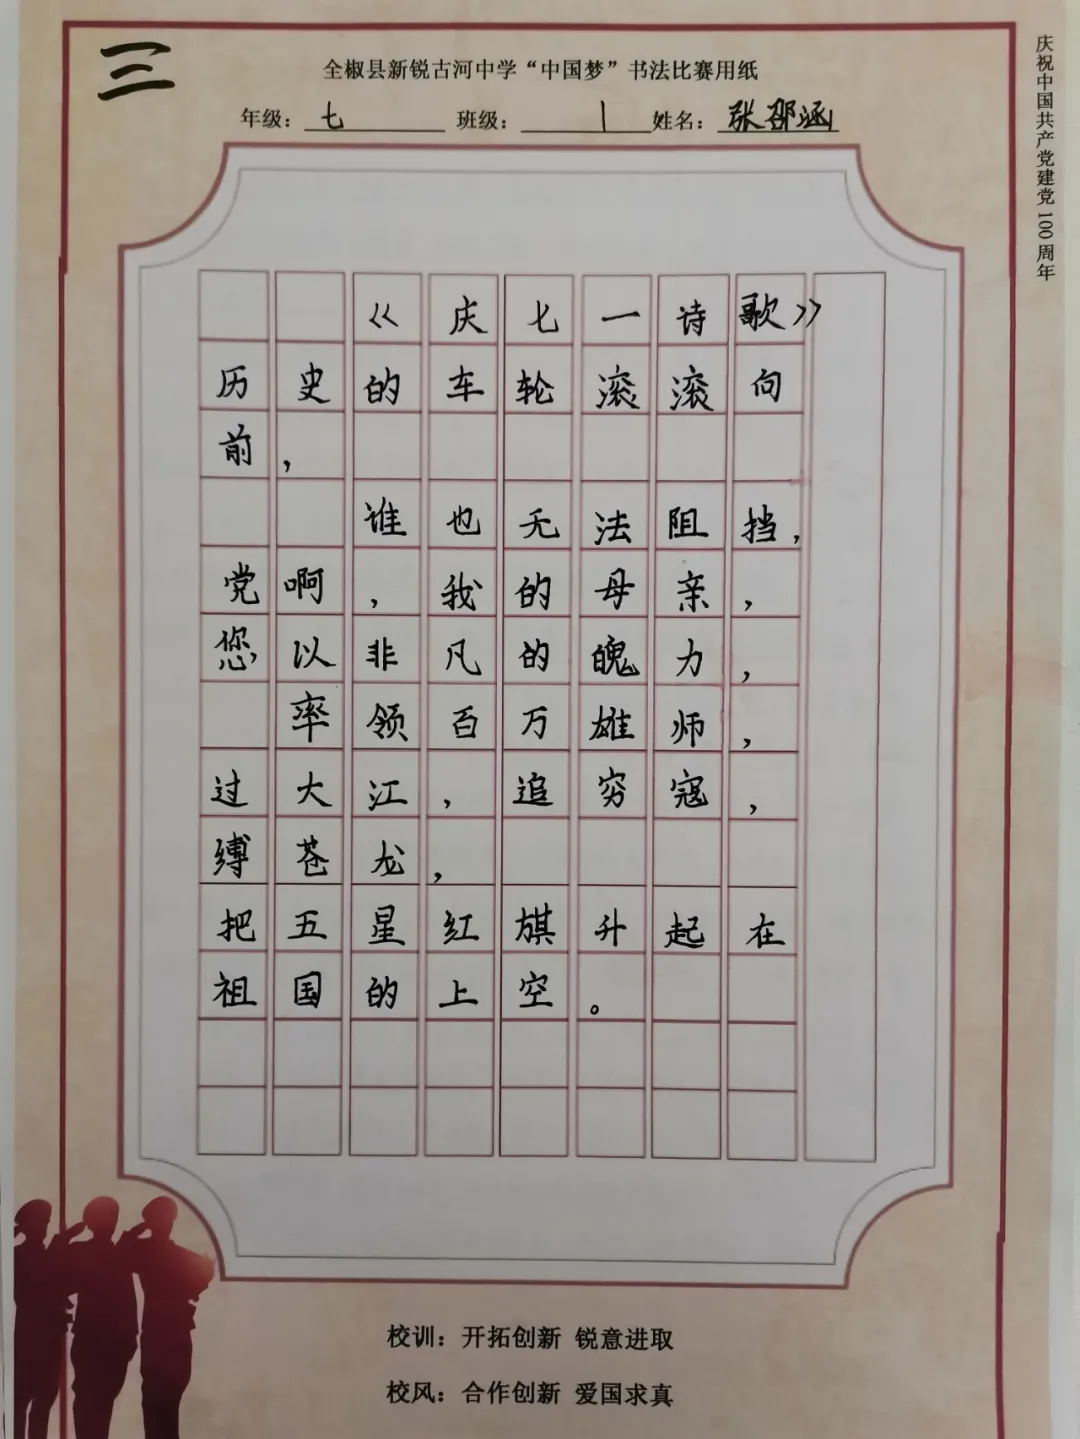 三
全椒县新锐古河中学“中国梦”书法比赛用纸
年级：七 班级：1 姓名：张邵涵
庆祝中国共产党建党100周年
《庆七一诗歌》
历史的车轮滚滚向
前，
谁也无法阻挡，
党啊，我的母亲，
您，以非凡的魄力，
率领百万雄师，
过大江，追穷寇，
缚苍龙，
把五星红旗升起在
祖国的上空。
校训：开拓创新 锐意进取
校风：合作创新 爱国求真